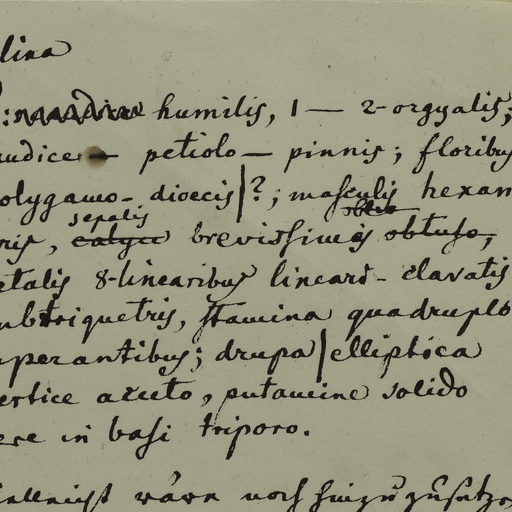 lina
: humilis, 1 — 2-orgyalis;
audice — petiolo — pinnis; floribus
olygamo-dioecis|?; masculis hexan
ris, calyce sepalis brevissimis obtuso,
etalis 8-linearibus lineari-clavatis
ubtriquetris, stamina quadruplo
uperantibus; drupa|elliptica
ertice acuto, putamine solido
ere in basi triporo.
ielleicht wäre noch hinzuzusetzen